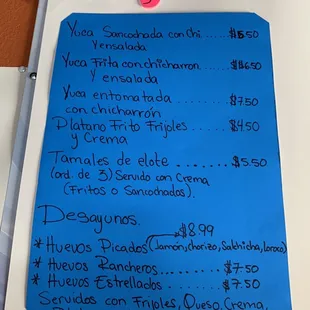 Yuca Sancochada con Chi ..... $6.50
y ensalada
Yuca Frita con chicharron .... $6.50
Y ensalada
Yuca entomatada
con chicharrón ........ $7.50
Platano Frito Frijoles ..... $4.50
y Crema
Tamales de elote ....... $5.50
(ord. de 3) Servido con Crema
(Fritos o Sancochados).
Desayunos.
$8.99
* Huevos Picados (Jamón, chorizo, Salchicha, Loroco)
* Huevos Rancheros......... $7.50
* Huevos Estrellados........ $7.50
Servidos con Frijoles, Queso, Crema,